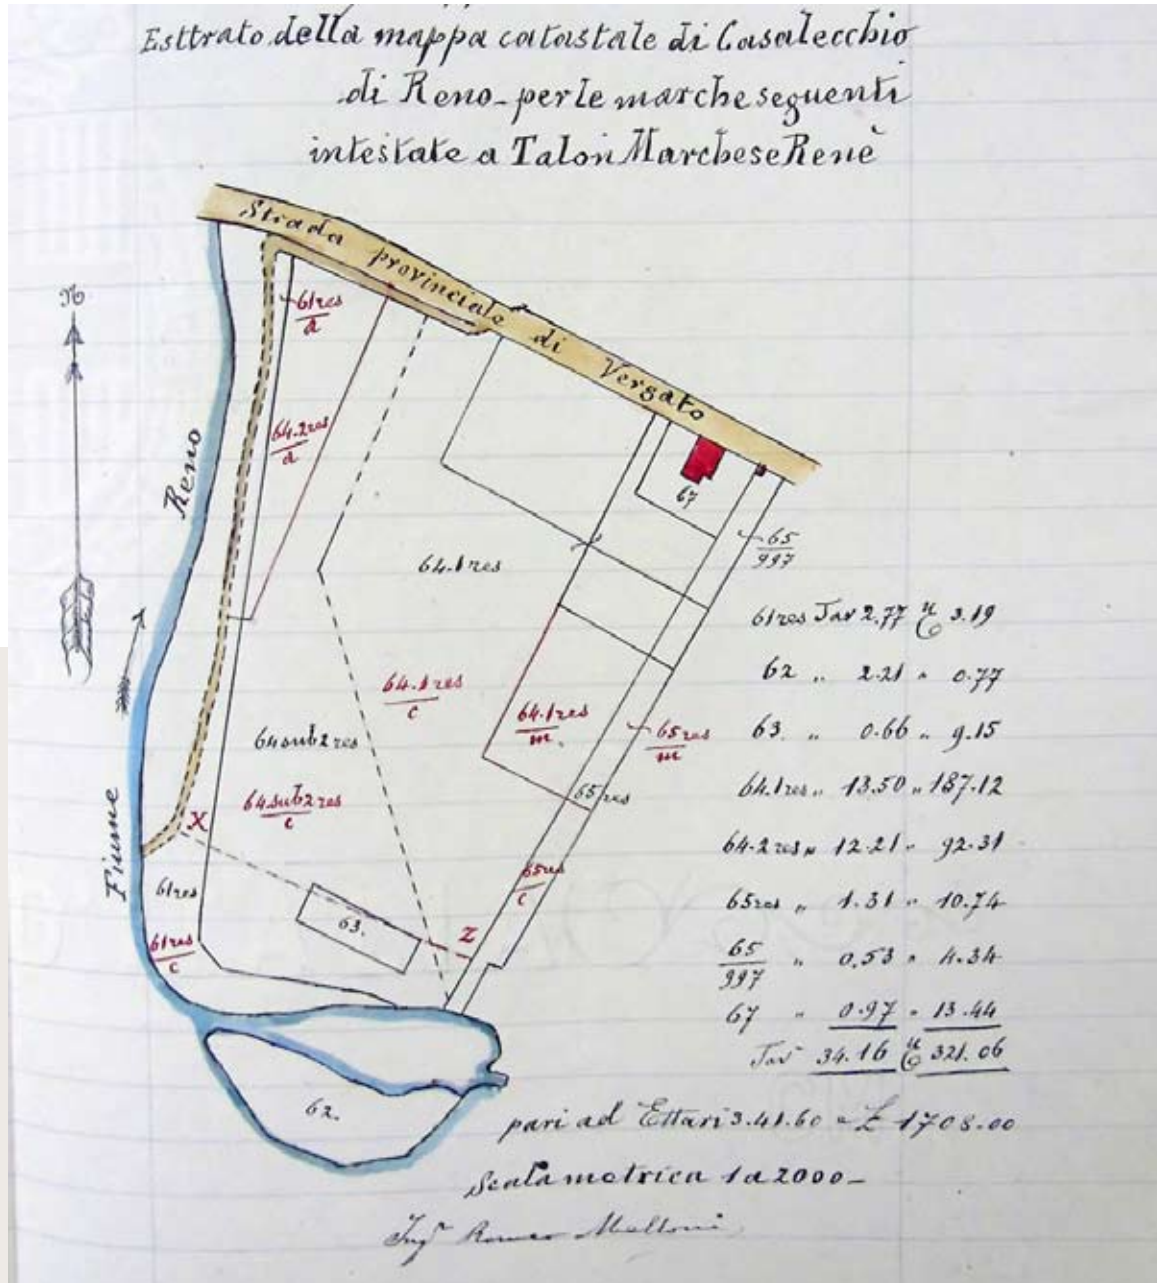 Esttrato della mappa catastale di Casalecchio
di Reno - per le marche seguenti
intestate a Talon Marchese Renè
Strada provinciale di Vergato
n
61 res
a
64.2 res
a
Reno
67
65
997
64.1 res
64.1 res
c
64.1 res
m.
65 res
m
64 sub 2 res
64 sub 2 res
c
65 res
X
Fiume
65 res
c
61 res
63.
Z
61 res
c
62.
61 res Tav 2.77 3.19
62 „ 2.21 „ 0.77
63. „ 0.66 „ 9.15
64.1 res „ 13.50 „ 187.12
64.2 res „ 12.21 „ 92.31
65 res „ 1.31 „ 10.74
65
997 „ 0.53 „ 4.34
67 „ 0.97 „ 13.44
Tav 34.16 321.06
pari ad Ettari 3.41.60 = £ 1708.00
Scala metrica 1 a 2000 -
Ingr Romeo Melloni